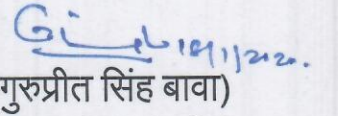 18/1/2020.
गुरुप्रीत सिंह बावा)